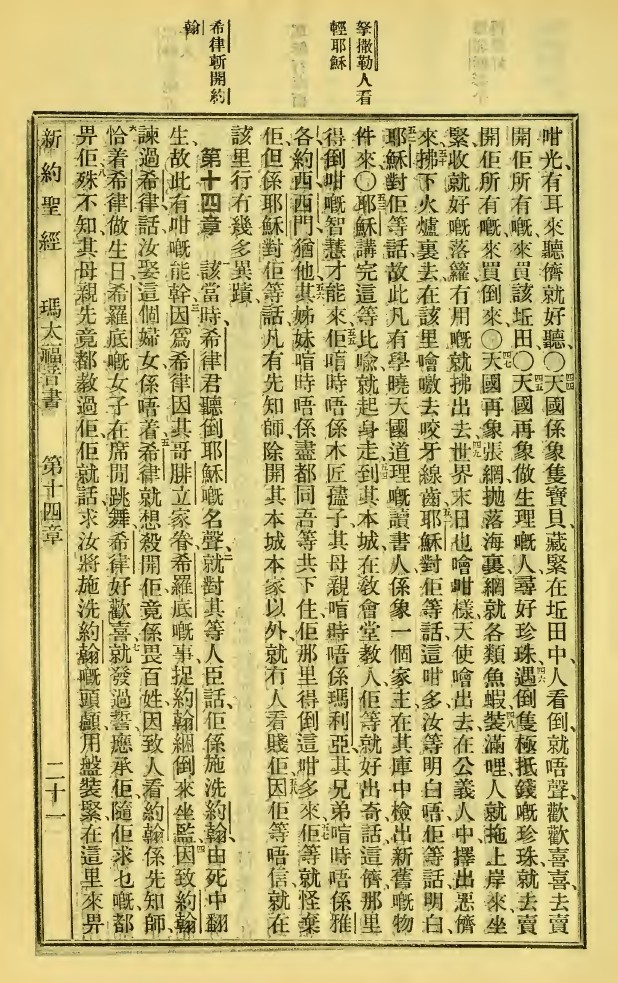 拏撒勒人看
輕耶穌
希律斬開約
翰
咁光、有耳來聽儕就好聽、〇四四天國係象隻寶貝、藏緊在坵田中、人看倒、就唔聲、歡歡喜喜、去賣
開佢所有嘅、來買該坵田、〇四五天國再象做生理嘅人、尋好珍珠、四六遇倒隻極抵錢嘅珍珠、就去賣
開佢所有嘅、來買倒來、〇四七天國再象張網、抛落海裏、網就各類魚蝦、四八裝滿哩、人就拖上岸來、坐
緊收就好嘅落籮、冇用嘅就拂出去、四九世界末日也噲咁樣、天使噲出去、在公義人中、擇出惡儕
來、五十拂下火爐裏去、在該里噲噭去咬牙線齒、五一耶穌對佢等話、這咁多汝等明白唔、佢等話、明白、
五二耶穌對佢等話、故此凡有學曉天國道理嘅讀書人、係象一個家主、在其庫中、檢出新舊嘅物
件來、〇五三耶穌講完這等比喩、就起身、五四走到其本城、在敎會堂敎人、佢等就好出奇、話、這儕那里
得倒咁嘅智慧才能來、五五佢喑時唔係木匠孻子、其母親喑時唔係瑪利亞、其兄弟喑時唔係雅
各約西西門猶他、五六其姊妹喑時唔係盡都同吾等共下住、佢那里得倒這咁多來、五七佢等就怪棄
佢、但係耶穌對佢等話、凡有先知師、除開其本城本家以外、就冇人看賤佢、五八因佢等唔信、就在
該里行冇幾多異蹟、
第十四章 一該當時、希律君聽倒耶穌嘅名聲、二就對其等人臣話、佢係施洗約翰、由死中翻
生、故此有咁嘅能幹、三因爲希律因其哥腓立家眷希羅底嘅事、捉約翰綑倒來坐監、四因致約翰
諫過希律話、汝娶這個婦女係唔着、五希律就想殺開佢、竟係畏百姓、因致人看約翰係先知師、
六恰着希律做生日、希羅底嘅女子在席間跳舞、希律好歡喜、七就發過誓、應承佢隨佢求乜嘅都
畀佢、八殊不知其母親先竟都敎過佢、佢就話、求汝將施洗約翰嘅頭顱、用盤裝緊、在這里來畀
新約聖經 瑪太福音書 第十四章 二十一